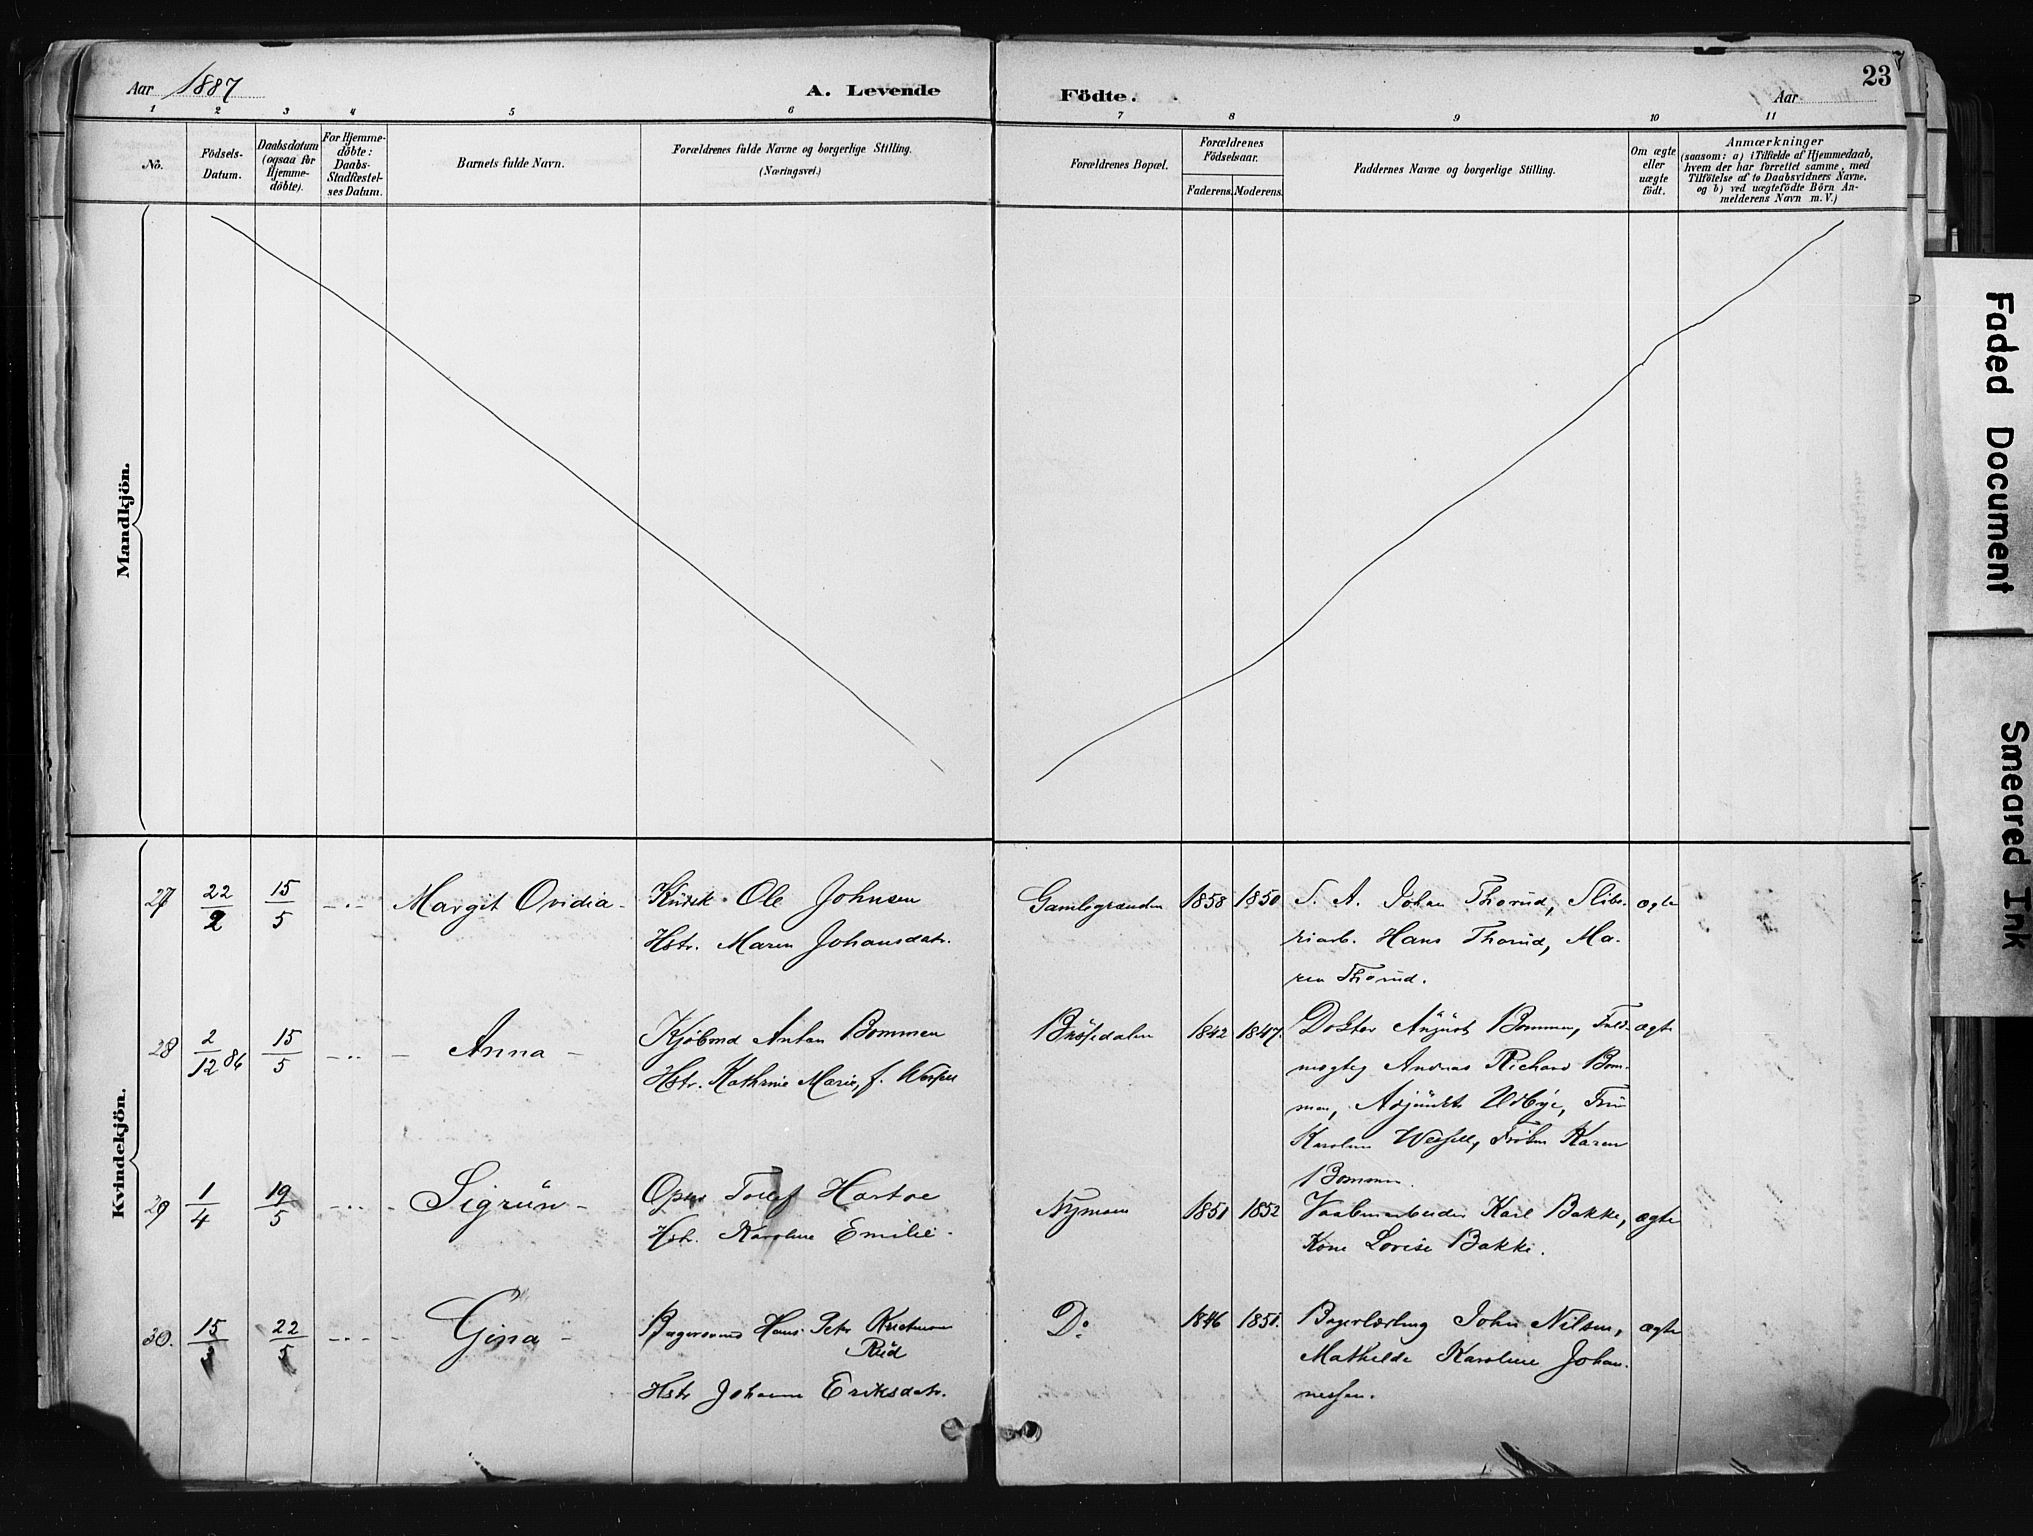 Aar 1887
A. Levende
Födte.
Aar
23
1 2 3 4 5 6 7 8 9 10 11
No.
Födsels-
Datum.
Daabsdatum
(ogsaa for
Hjemme-
döbte).
For Hjemme-
döbte:
Daabs-
Stadfæstel-
ses Datum.
Barnets fulde Navn.
Forældrenes fulde Navne og borgerlige Stilling.
(Næringsvei.)
Forældrenes Bopæl.
Forældrenes
Födselsaar.
Faderens. Moderens.
Faddernes Navne og borgerlige Stilling.
Om ægte
eller
uægte
födt.
Anmærkninger
(saasom: a) i Tilfælde af Hjemmedaab,
hvem der har forrettet samme, med
Tilföielse af to Daabsvidners Navne,
og b) ved uægtefödte Börn An-
melderens Navn m. V.)
Mandkjön.
Kvindekjön.
27 22/2 15/5 Margit Ovidia Ole Johnsen
Hstr. Maren Johansdatr.
1858 1850 S. A. Johan Thorud, Slibe- ægte
riarb. Hans Thorud, Ma-
ren Thorud.
28 2/12 86 15/5 Anna Kjøbmd Anton Bommen
Hstr. Kathrine Marie, f.
1842 1847. Doktor August Bommen, Fuld- ægte
mægtig Andreas Richard Bom-
men, Adjunkt Udbye, Fru
Karoline Wessell, Frøken Karen
Bommen.
29 1/4 19/5 Sigrun Hartoe
Hstr. Karoline Emilie.
Nymoen 1851 1852 Vaabenarbeider Karl Bakke, ægte
Kone Lovise Bakke.
30. 15 22/5 Gina Bagersvend Hans Petr
Rud
Hstr Johanne Eriksdatr.
Do 1846 1851. Bagerlærling John Nilsen, ægte
Mathilde Karoline Johan-
nessen.
Faded Document
Smeared Ink